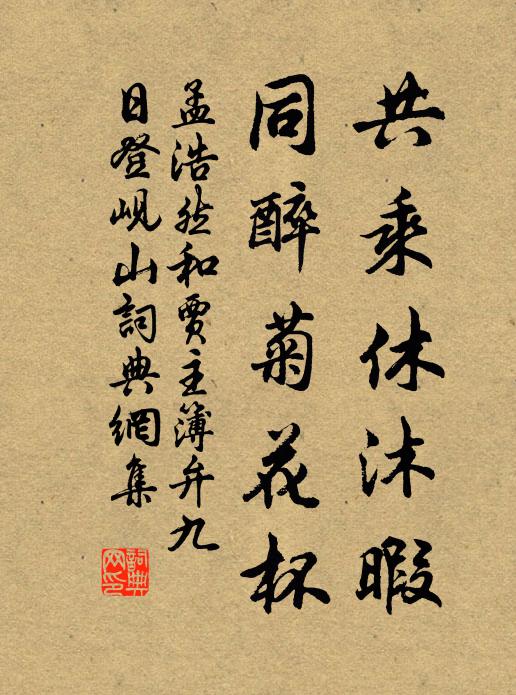 共乘休沐暇
同醉菊花杯
孟浩然和賈主簿弁九
日登峴山詞典網集
詞典
网印